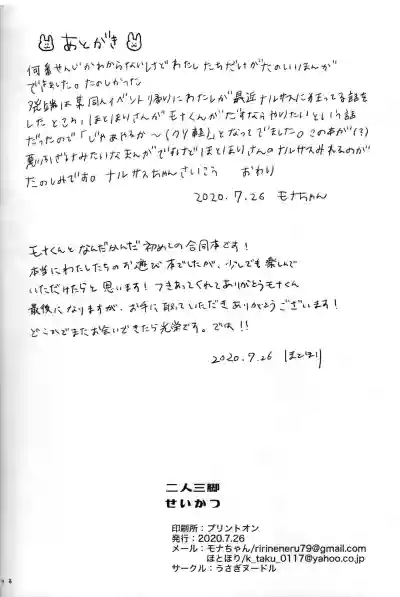 あとがき
何番せんじかわからないけどわたしたちだけがたのしいまんが
できました。たのしかった
発端は某同人イベント帰りにわたしが最近ナルサスにはまってる話を
したところ、ほとほりさんがモナくんがだすならやりたいという話
だったので「じゃあやるか〜(フッ軽)」となってでました。この本が(?)
悪ふざけみたいなまんがですけどほとほりさんのナルサスみれるのが
たのしみでお。ナルサスちゃんさいこう おわり
2020.7.26 モナちゃん
モナくんとなんだかんだ初めての合同本です!
本当にわたしたちのお遊び本でしたが、少しでも楽しんで
いただけたらと思います!つきあってくれてありがとうモナくん
最後になりますが、お手に取っていただきありがとうございます!
どこかでまたお会いできたら光栄です。では!!
2020.7.26 ほとほり
二人三脚
せいかつ
印刷所:プリントオン
発行:2020.7.26
メール:モナちゃん/ririneneru79@gmail.com
ほとほり/k_taku_0117@yahoo.co.jp
サークル:うさぎヌードル